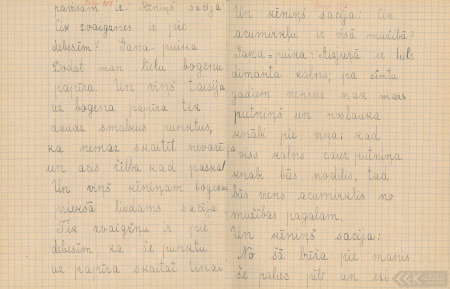 pavisam ir. Ķēniņš sacīja:
Cik zvaigznes ir pie
debesīm? Gana-puika
Dodat man lielu bogenu
papīra. Un viņš taisīja
uz bogena papīra tik
daudz smalkus punktus,
ka nemaz skaitīt nevarēja
un acis žilba kad paskatījās
Un viņš ķēniņam bogenu
priekšā likdams sacīja
Tik zvaigžņu ir pie
debesīm, ka še punktu
uz papīra skaitāt tikai
Un ķēniņš sacīja: Cik
acumirkļu ir visā mūžībā?
Gana-puika: Aizjūrā ir liels
dimanta kalns; pa simtu
gadiem vienreiz nāk mazs
putniņš un noslauka
knābi pie viņa; kad
viss kalns caur putniņa
knābi būs nodilis, tad
būs viens acumirklis no
mūžības pagājis.
Un ķēniņš sacīja:
No šā brīža pie manis
še paliec pilī un esi